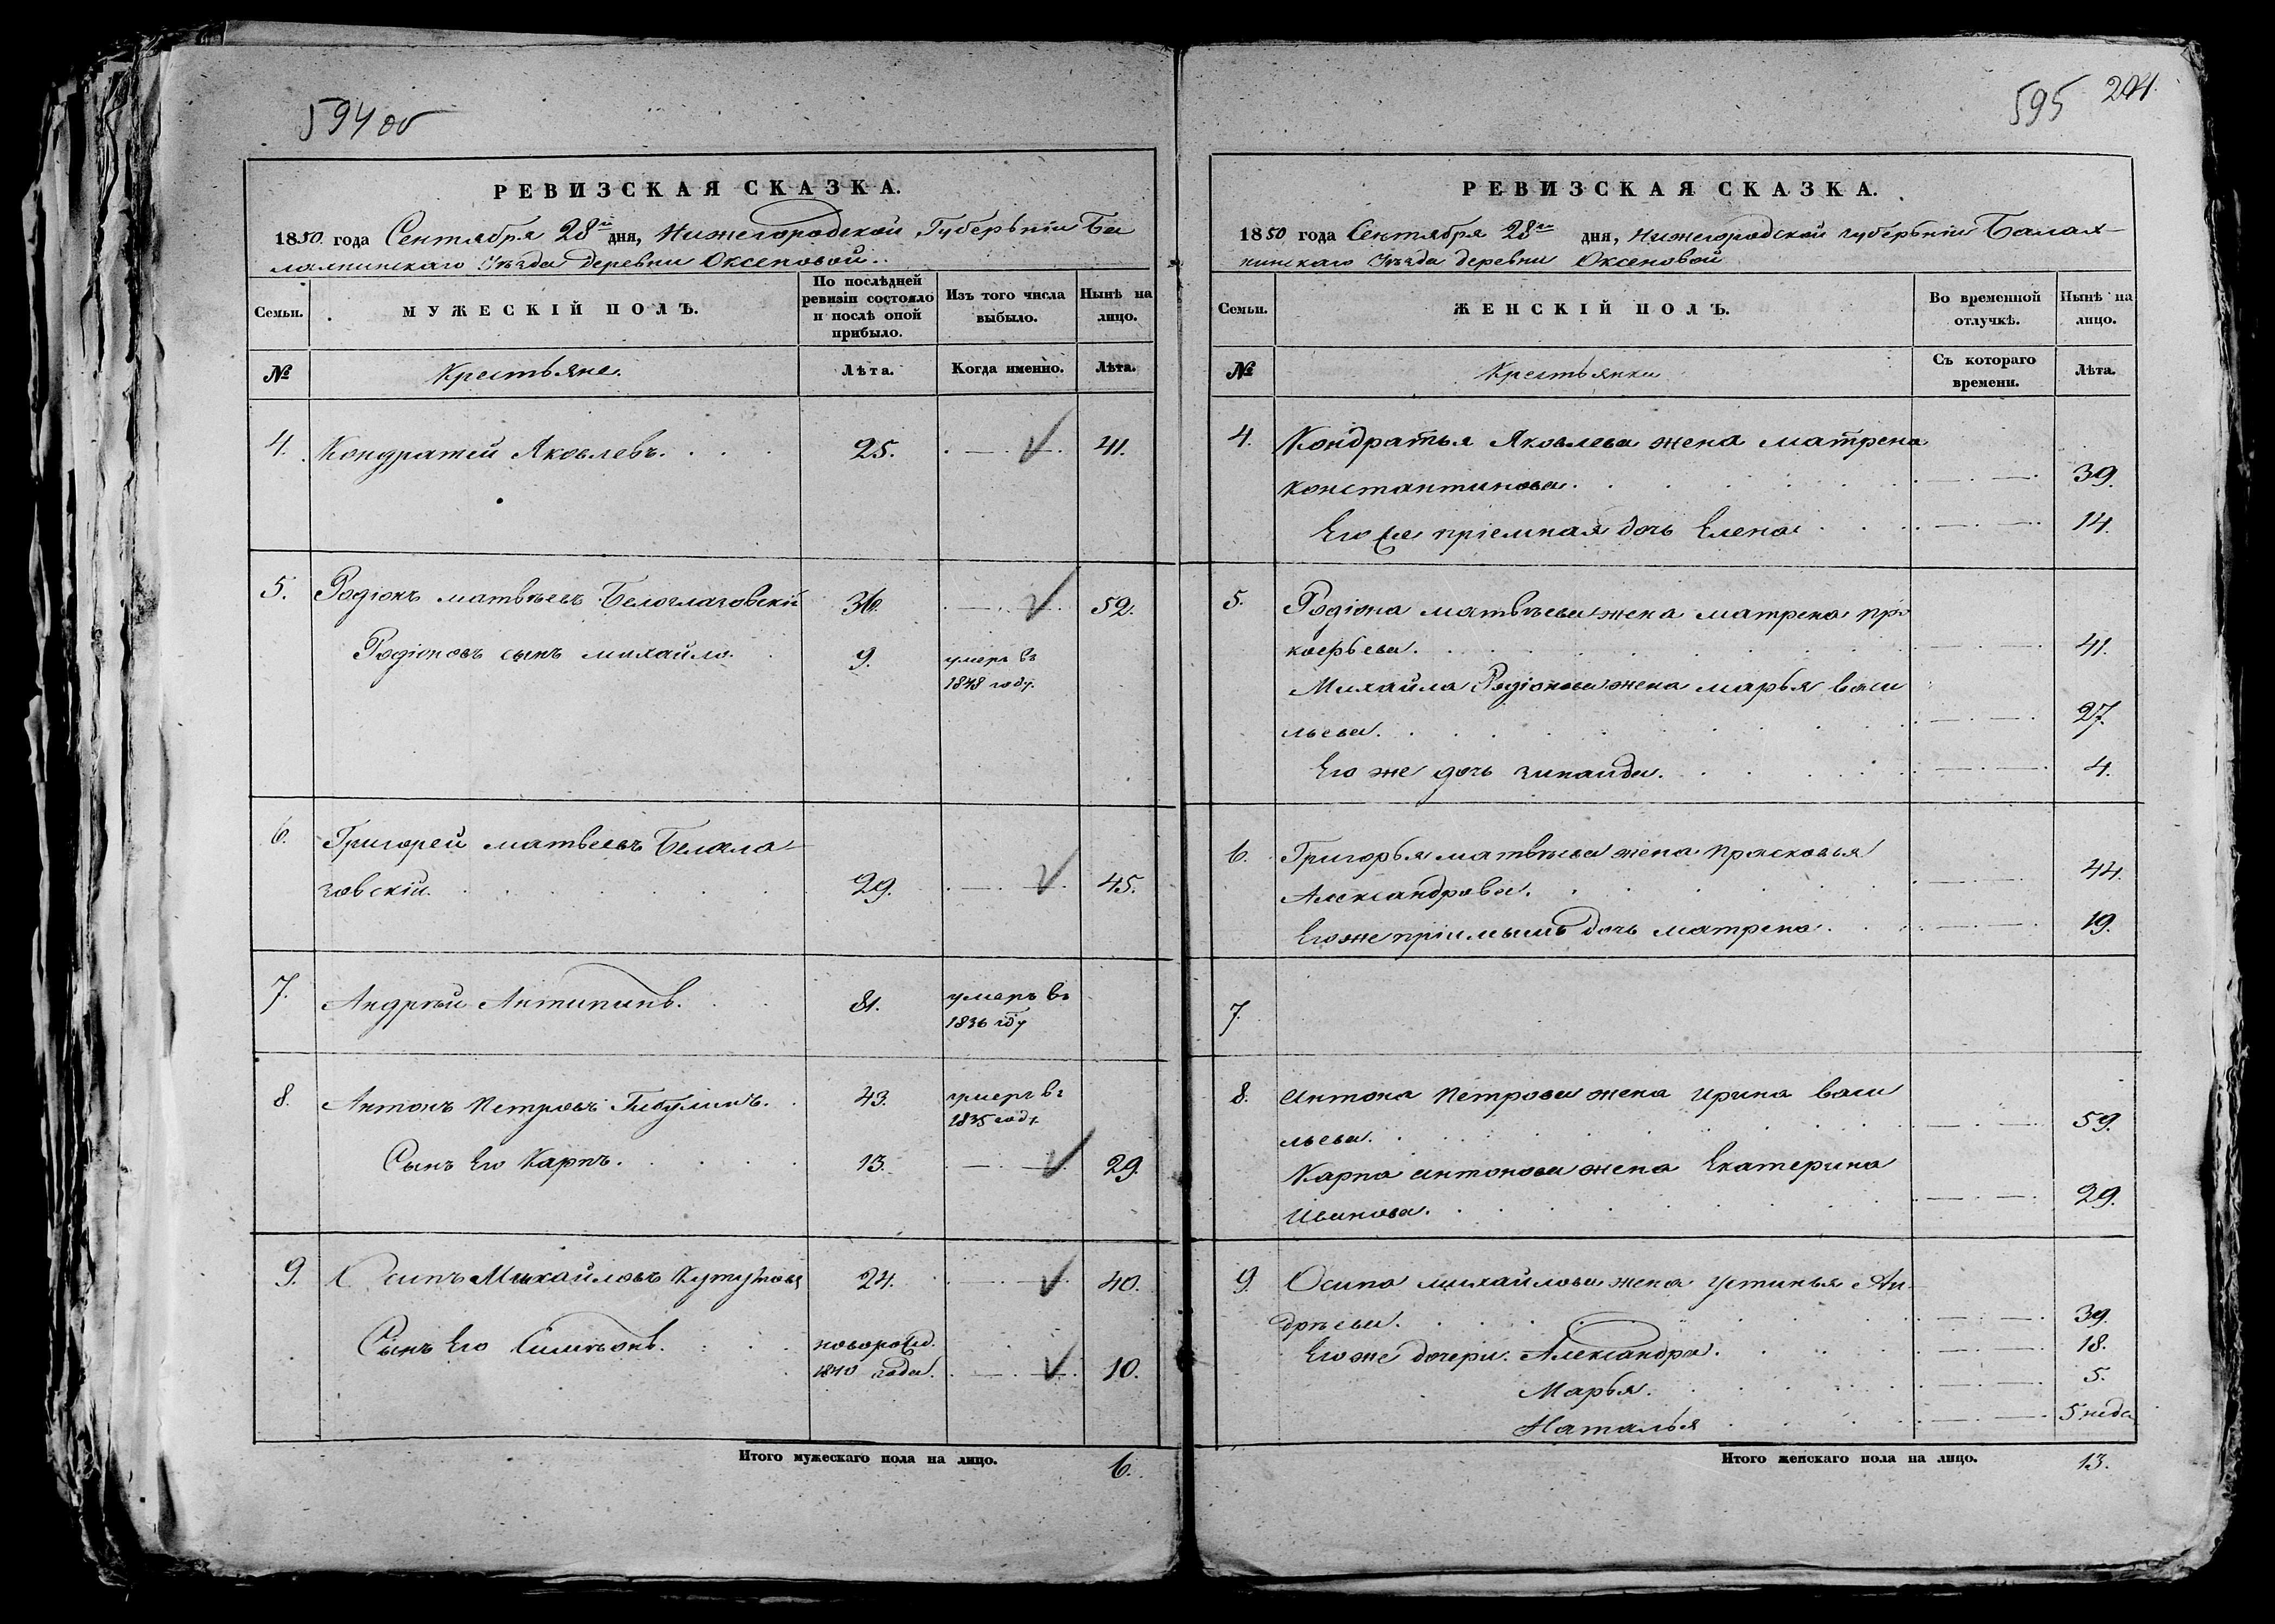 594 об
РЕВИЗСКАЯ СКАЗКА.
1850 года Сентября 28го дня, Нижегородской Губерьнiи Ба
лахнинскаго Уѣзда Деревни Оксеновой.
Семьи.
МУЖЕСКIЙ ПОЛЪ.
По послѣдней ревизiи состояло и послѣ оной прибыло.
Изъ того числа выбыло.
Нынѣ на лицо.
№
Крестьяне.
Лѣта.
Когда именно.
Лѣта.
4. Кондратей Яковлевъ. 25. 41.
5. Родiонъ Матвѣевъ 36. 52.
Родiоновъ сынъ Михайло. 9. умеръ въ
1848 году.
6. Григорей Матвеевъ Белогла
зовскiй. 29. 45.
7. Андрѣй Антипинъ. 81. умеръ въ
1836 году
8. Антонъ Петровъ 43. умеръ въ
1835 году
Сынъ Его Карпъ. 13. 29.
9. Осипъ Михайловъ Кутузовъ 24. 40.
Сынъ Его Симѣонъ. новорожд.
1840 года. 10.
Итого мужескаго пола на лицо. 6.
595 204.
РЕВИЗСКАЯ СКАЗКА.
1850 года Сентября 28го дня, Нижегородской губерьнiи Балах
нинскаго Уѣзда деревни Оксеновой
Семьи.
ЖЕНСКIЙ ПОЛЪ.
Во временной отлучкѣ.
Нынѣ на лицо.
№
Крестьянки
Съ котораго времени.
Лѣта.
4. Кондратья Яковлева жена Матрена
Константинова. 39.
Его же прiемная дочь Елена 14.
5. Родiона Матвѣева жена Матрена Про
кофьева. 41.
Михайла Родiонова жена Марья Васи
льева. 27.
Его же дочь Зинаида. 4.
6. Григорья Матвѣева жена Прасковья
Александрова. 44.
Его же дочь Матрена. 19.
7.
8. Антона Петрова жена Ирина Васи
льева. 59.
Карпа Антонова жена Екатерина
Иванова. 29.
9. Осипа Михайлова жена Устинья Ан-
дрѣева. 39.
Его же дочери. Александра. 18.
Марья. 5.
Наталья 5 неде
Итого женскаго пола на лицо. 13.